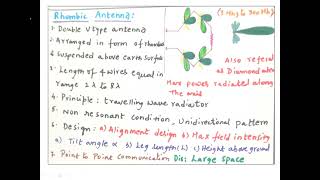 Rhombic Antenna:
1. Double V type antenna
2. Arranged in form of rhombus
3. Suspended above Earth surface
3. Length of 4 wires equal in
range 2λ to 8λ
4. Principle: travelling wave radiator
5. Non resonant condition, Unidirectional pattern
6. Design: a) Alignment design b) Max field intensity
a) Tilt angle α b) Leg length (L) c) Height above ground
7. Point to Point Communication Dis: Large Space
(3 MHz to 300 MHz)
Also referred
as Diamond antenna
More power radiated along
The axis